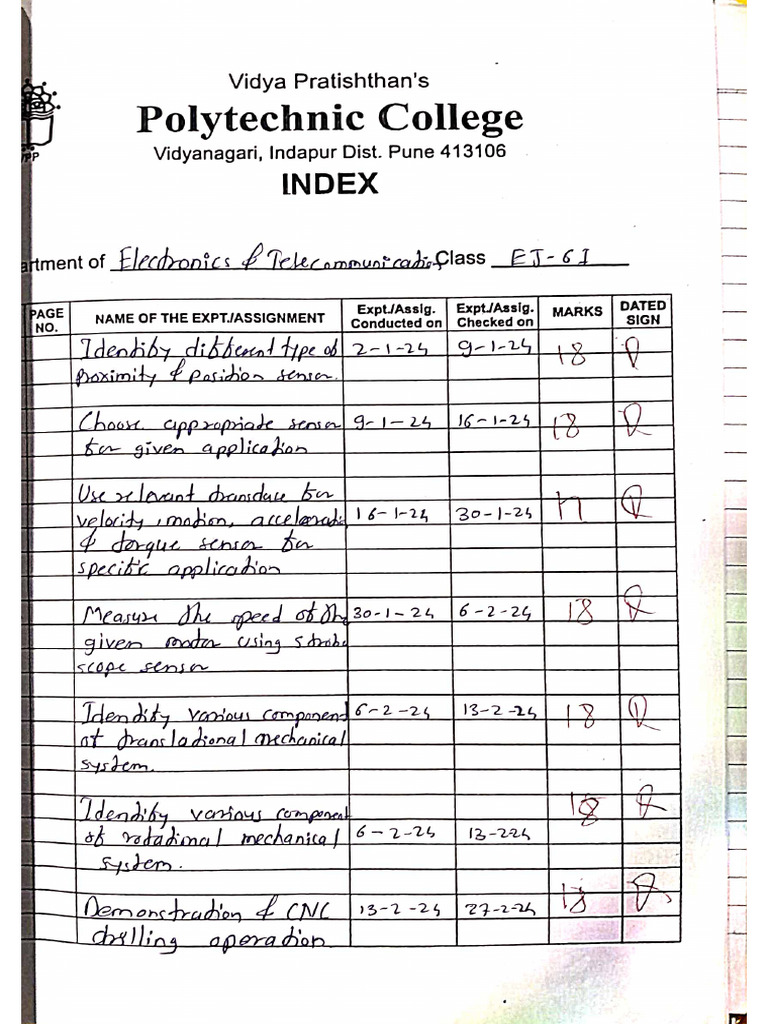 Vidya Pratishthan's
Polytechnic College
Vidyanagari, Indapur Dist. Pune 413106
INDEX
artment of Electronics & Telecommunication Class EJ-6I
PAGE NO. NAME OF THE EXPT./ASSIGNMENT Expt./Assig. Conducted on Expt./Assig. Checked on MARKS DATED SIGN
Identify different type of 2-1-24 9-1-24 18
proximity & position sensor.
Choose appropriate sensor 9-1-24 16-1-24 18
for given application
Use relevant transduce for
velocity, motion, accelerati 16-1-24 30-1-24
& torque sensor for
specific application
Measure the speed of the 30-1-24 6-2-24 18
given motor using strobo
scope sensor
Identify various component 6-2-24 13-2-24 18
of translational mechanical
system.
Identify various component 18
of rotational mechanical 6-2-24 13-224
system.
Demonstration of CNC 13-2-24 27-2-24 18
drilling operation